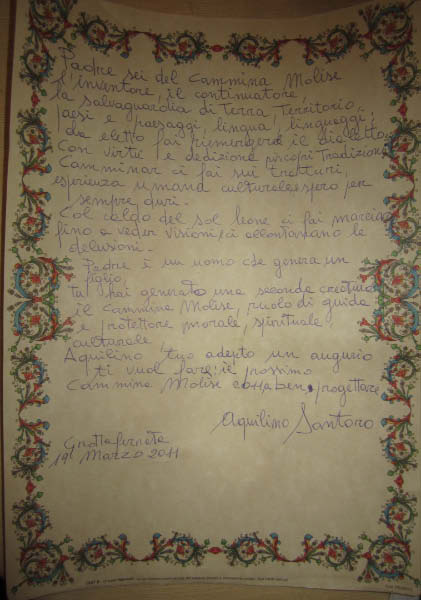 Padre sei del Cammina Molise
l'inventore, il continuatore,
la salvaguardia di Terra, Territorio,
paesi e paesaggi, lingua, linguaggi,
da eletto fai riemergere il dialetto,
Con virtù e dedizione riscopri tradizioni
Camminar ci fai sui tratturi,
esperienza umana culturale spero per
sempre duri.
Col caldo del sol leone ci fai marciar
fino a veder visioni, ci allontaniamo le
delusioni.
Padre è un uomo che genera un
figlio,
tu hai generato una seconda creatura
il Cammina Molise, ruolo di guida
e protettore morale, spirituale,
culturale,
Aquilino tuo adepto un augurio
ti vuol fare, il prossimo
Cammina Molise ben progettare
Aquilino Santoro
Grottaferrata
19 Marzo 2011